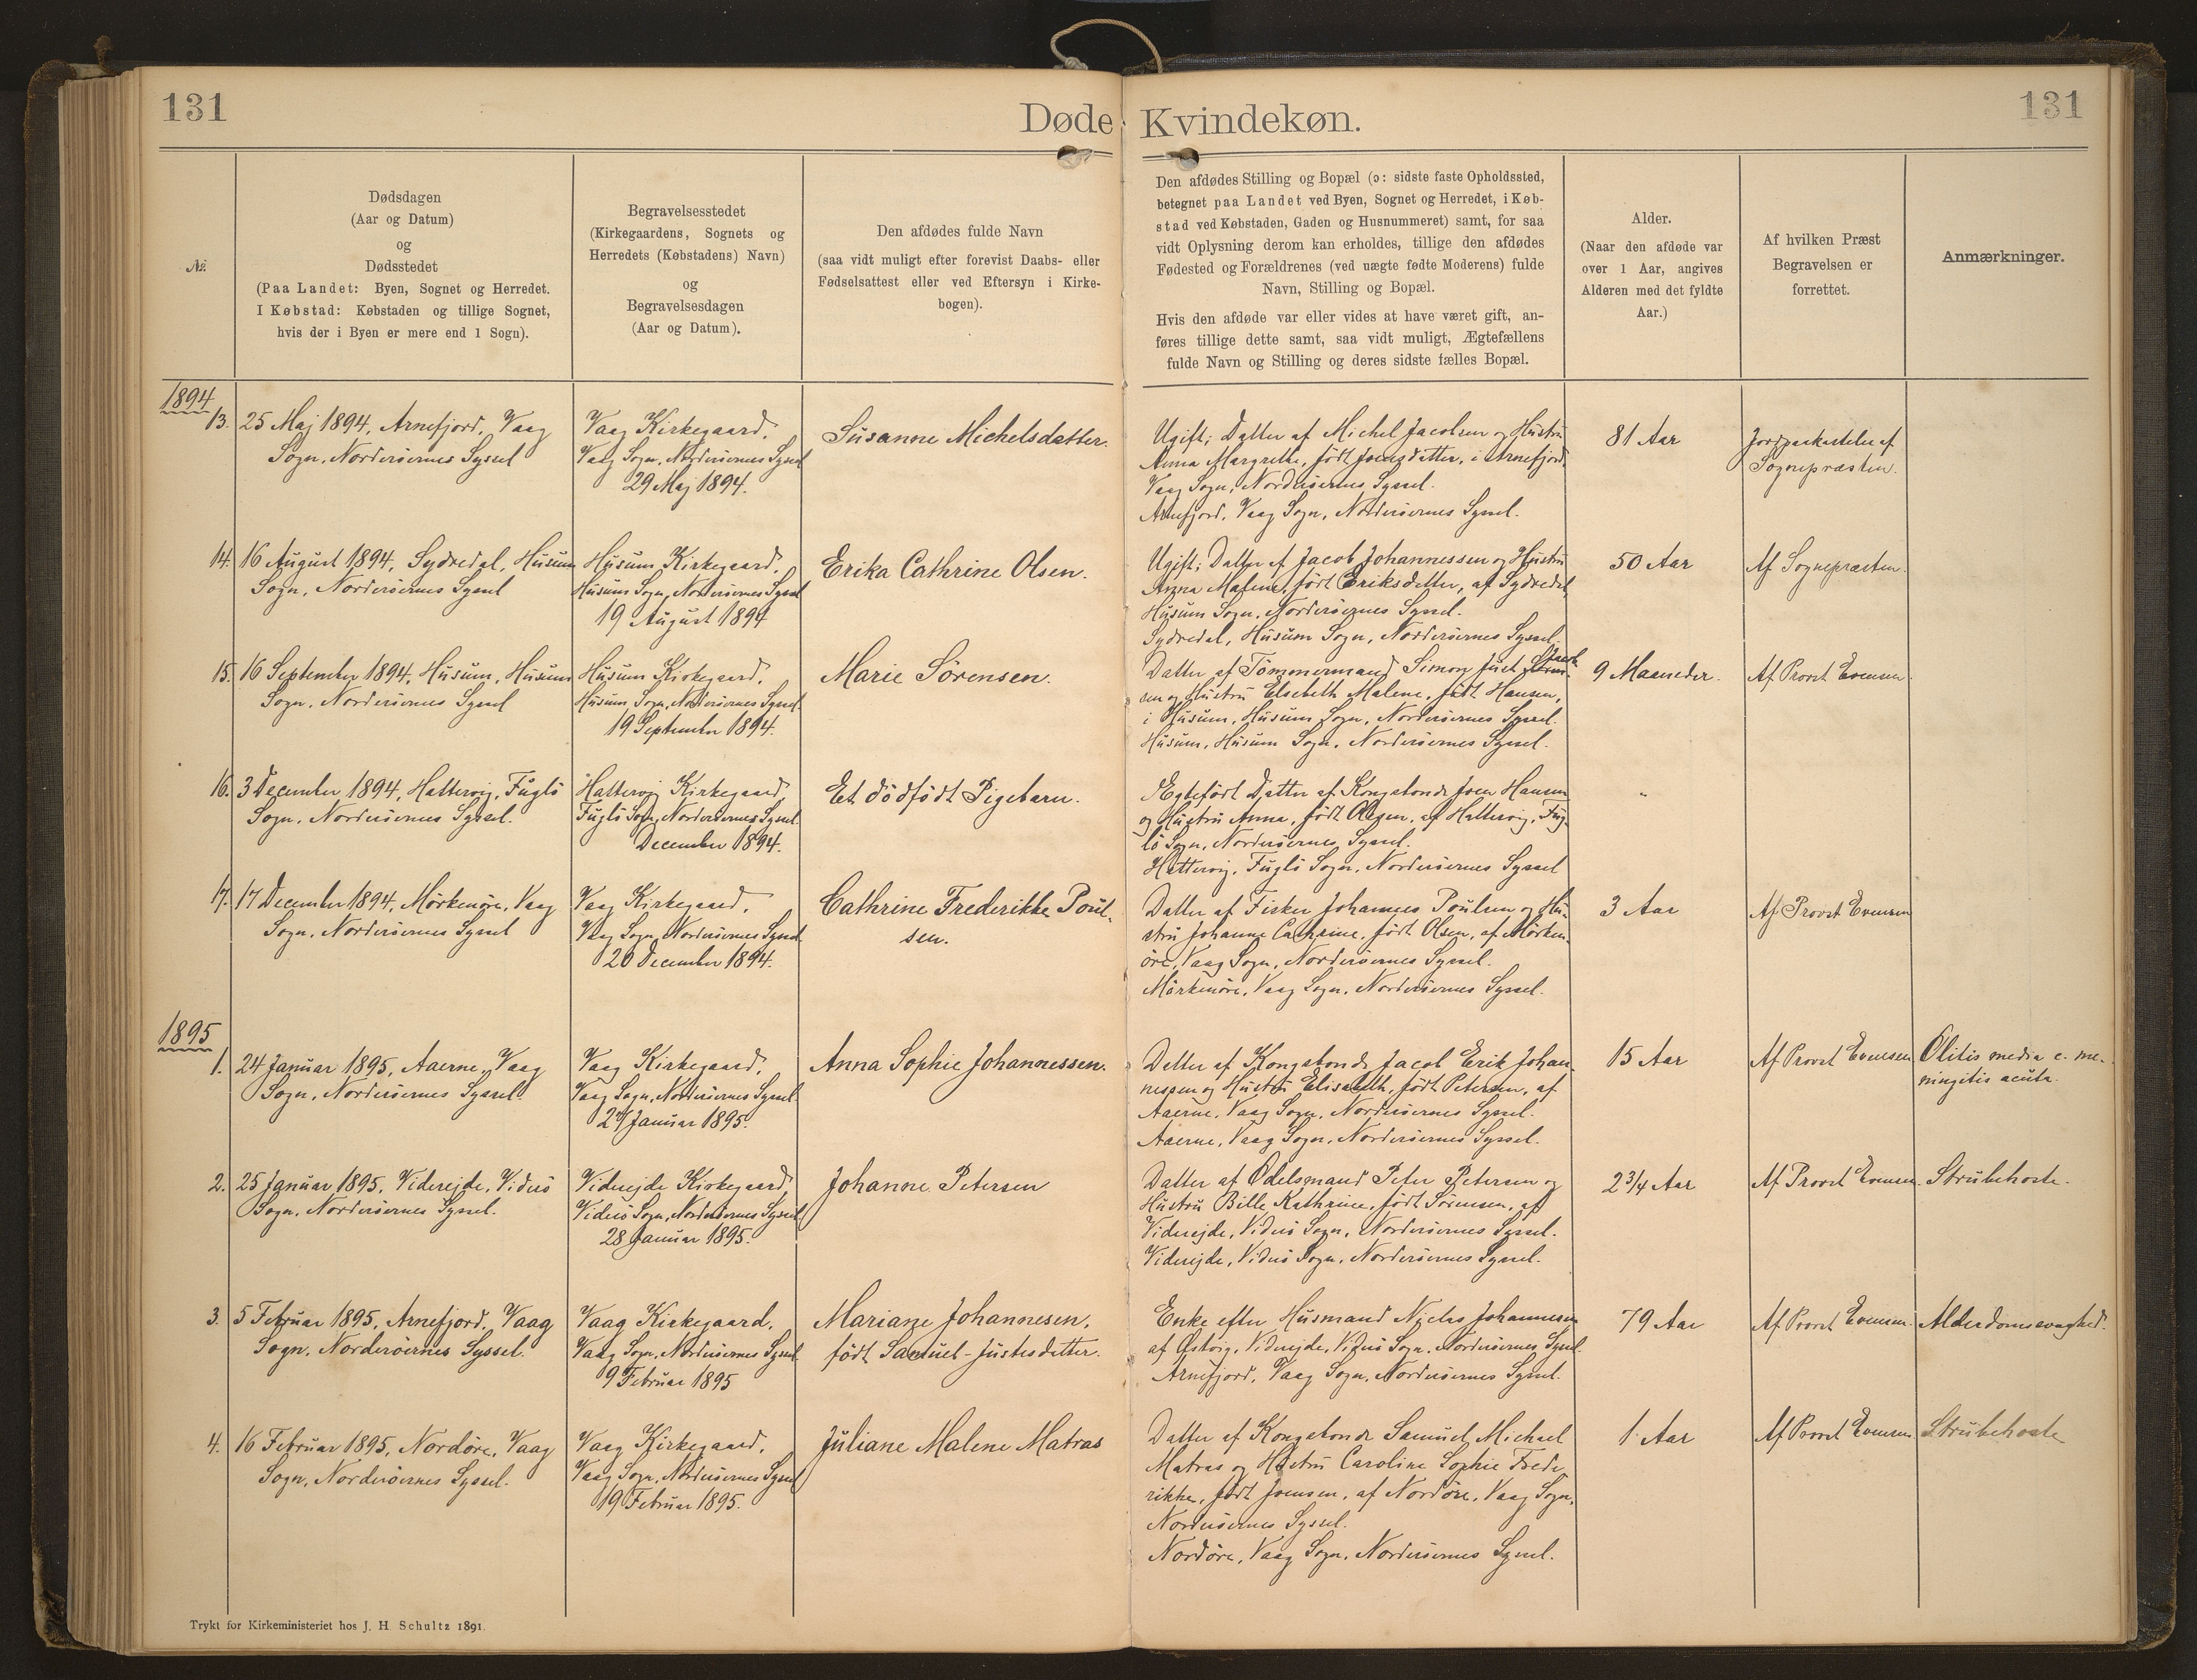 131
Døde Kvindekøn.
131
№.
Dødsdagen
(Aar og Datum)
og
Dødsstedet
(Paa Landet: Byen, Sognet og Herredet.
I Købstad: Købstaden og tillige Sognet,
hvis der i Byen er mere end 1 Sogn).
Begravelsesstedet
(Kirkegaardens, Sognets og
Herredets (Købstadens) Navn)
og
Begravelsesdagen
(Aar og Datum).
Den afdødes fulde Navn
(saa vidt muligt efter forevist Daabs- eller
Fødselsattest eller ved Eftersyn i Kirke-
bogen).
Den afdødes Stilling og Bopæl (ɔ: sidste faste Opholdssted,
betegnet paa Landet ved Byen, Sognet og Herredet, i Køb-
stad ved Købstaden, Gaden og Husnummeret) samt, for saa
vidt Oplysning derom kan erholdes, tillige den afdødes
Fødested og Forældrenes (ved uægte fødte Moderens) fulde
Navn, Stilling og Bopæl.
Hvis den afdøde var eller vides at have været gift, an-
føres tillige dette samt, saa vidt muligt, Ægtefællens
fulde Navn og Stilling og deres sidste fælles Bopæl.
Alder.
(Naar den afdøde var
over 1 Aar, angives
Alderen med det fyldte
Aar.)
Af hvilken Præst
Begravelsen er
forrettet.
Anmærkninger.
1894
13.
25 Maj 1894, Arnefjord, Vaag
Sogn, Norderöernes Syssel
Vaag Kirkegaard,
Vaag Sogn, Norderöernes Syssel
29 Maj 1894.
Susanne Michelsdatter.
Ugift; Datter af Michel Jacobsen og Hustru
Anna Margrethe, født Joensdatter, i Arnefjord,
Vaag Sogn, Norderöernes Syssel.
Arnefjord, Vaag Sogn, Norderöernes Syssel.
81 Aar
Jordpaakastelse af
Sognepræsten.
14.
16 August 1894, Sydredal, Husum
Sogn, Norderöernes Syssel
Husum Kirkegaard,
Husum Sogn, Norderöernes Syssel
19 August 1894
Erika Cathrine Olsen.
Ugift; Datter af Jacob Johannessen og Hustru
Anna Malene, født Eriksdatter, af Sydredal,
Husum Sogn, Norderöernes Syssel.
Sydredal, Husum Sogn, Norderöernes Syssel.
50 Aar
Af Sognepræsten.
15.
16 September 1894, Husum, Husum
Sogn, Norderöernes Syssel
Husum Kirkegaard,
Husum Sogn, Norderöernes Syssel
19 September 1894.
Marie Sörensen.
Datter af Tömmermand Simon Just
sen og Hustru Elsebeth Malene, født Hansen,
i Husum, Husum Sogn, Norderöernes Syssel.
Husum, Husum Sogn, Norderöernes Syssel.
9 Maaneder.
Af Provst Evensen
16.
3 December 1894, Hattervig, Fuglö
Sogn, Norderöernes Syssel.
Hattervig Kirkegaard,
Fuglö Sogn, Norderöernes Syssel.
December 1894.
Et dödfödt Pigebarn.
Ægtefødt Datter af Kongsbonde Joen Hansen
og Hustru Anna, født Olsen, af Hattervig, Fug-
lö Sogn, Norderöernes Syssel.
Hattervig, Fuglö Sogn, Norderöernes Syssel
"
17.
17 December 1894, Mörkenöre, Vaag
Sogn, Norderöernes Syssel
Vaag Kirkegaard,
Vaag Sogn, Norderöernes Syssel
20 December 1894.
Cathrine Frederikke Poul-
sen.
Datter af Fisker Johannes Poulsen og Hu-
stru Johanne Cathrine, født Olsen, af Mörken-
öre, Vaag Sogn, Norderöernes Syssel.
Mörkenöre, Vaag Sogn, Norderöernes Syssel.
3 Aar
Af Provst Evensen
1895
1.
24 Januar 1895, Aaerne, Vaag
Sogn, Norderöernes Syssel.
Vaag Kirkegaard,
Vaag Sogn, Norderöernes Syssel
Januar 1895.
Anna Sophie Johannessen.
Datter af Kongsbonde Jacob Erik Johan-
nessen og Hustru Elisabeth, født Petersen, af
Aaerne, Vaag Sogn, Norderöernes Syssel.
Aaerne, Vaag Sogn, Norderöernes Syssel.
15 Aar
Af Provst Evensen
Otitis media c. me-
ningitis acuta.
2.
25 Januar 1895, Viderejde, Viderö
Sogn, Norderöernes Syssel.
Viderejde Kirkegaard,
Viderö Sogn, Norderöernes Syssel
28 Januar 1895.
Johanne Petersen
Datter af Odelsmand Peter Petersen og
Hustru Bille Kathrine, født Sörensen, af
Viderejde, Viderö Sogn, Norderöernes Syssel.
Viderejde, Viderö Sogn, Norderöernes Syssel.
2 3/4 Aar
Af Provst Evensen.
Strubehoste.
3.
5 Februar 1895, Arnefjord, Vaag
Sogn, Norderöernes Syssel.
Vaag Kirkegaard,
Vaag Sogn, Norderöernes Syssel
9 Februar 1895
Mariane Johannesen,
födt Samuel-Justesdatter.
Enke efter Husmand Niclas Johannesen
af Østvig, Viderejde, Viderö Sogn, Norderöernes Syssel.
Arnefjord, Vaag Sogn, Norderöernes Syssel.
79 Aar
Af Provst Evensen.
Alderdomssvaghed.
4.
16 Februar 1895, Nordöre, Vaag
Sogn, Norderöernes Syssel.
Vaag Kirkegaard,
Vaag Sogn, Norderöernes Syssel
19 Februar 1895.
Juliane Malene Matras
Datter af Kongsbonde Samuel Michael
Matras og Hustru Caroline Sophie Frede-
rikke, født Joensen, af Nordöre, Vaag Sogn,
Norderöernes Syssel.
Nordöre, Vaag Sogn, Norderöernes Syssel.
1 Aar
Af Provst Evensen
Strubehoste
Trykt for Kirkeministeriet hos J. H. Schultz 1891.